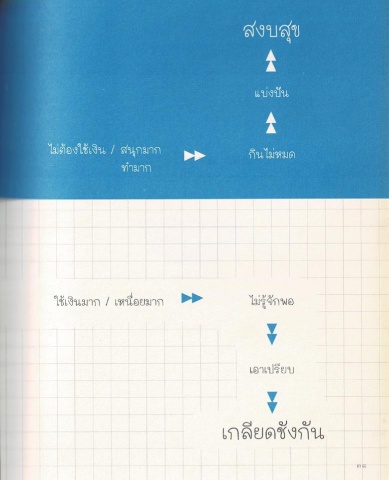 สงบสุข
แบ่งปัน
ไม่ต้องใช้เงิน / สนุกมาก
ทำมาก
กินไม่หมด
ใช้เงินมาก / เหนื่อยมาก
ไม่รู้จักพอ
เอาเปรียบ
เกลียดชังกัน